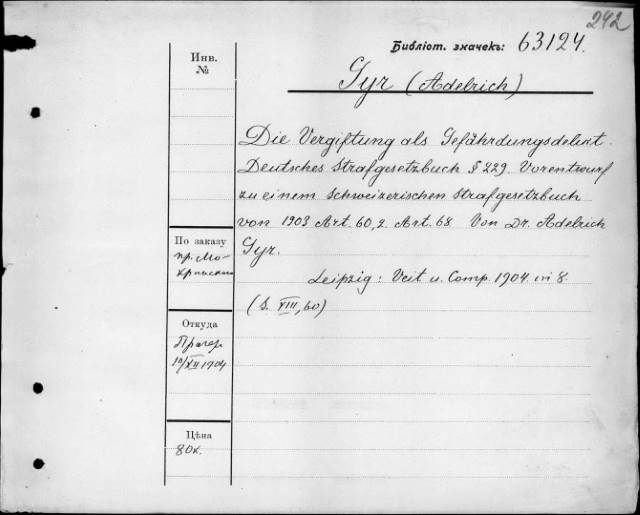 242
Библіот. значекъ: 63124.
Инв.
№
Gyr (Adelrich)
Die Vergiftung als Gefährdungsdelikt.
Deutsches Strafgesetzbuch § 229. Vorentwurf
zu einem schweizerischen Strafgesetzbuch
von 1903 Art. 60,2. Art. 68. Von Dr. Adelrich
Gyr.
Leipzig: Veit u. Comp. 1904. in 8.
(S. VIII, 60)
По заказу
пр. Мо-
кринскаго
Откуда
Прагер
10/XII 1904
Цѣна
80к.